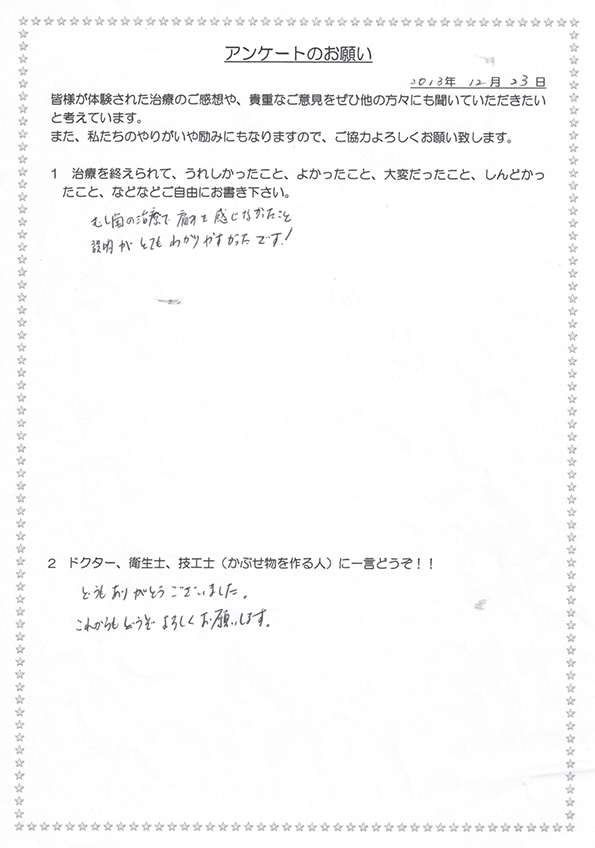 アンケートのお願い
2013年 12月 23日
皆様が体験された治療のご感想や、貴重なご意見をぜひ他の方々にも聞いていただきたい
と考えています。
また、私たちのやりがいや励みにもなりますので、ご協力よろしくお願い致します。
1 治療を終えられて、うれしかったこと、よかったこと、大変だったこと、しんどかっ
たこと、などなどご自由にお書き下さい。
むし歯の治療で痛みを感じなかったこと
説明がとてもわかりやすかったです!
2 ドクター、衛生士、技工士（かぶせ物を作る人）に一言どうぞ！！
どうもありがとうございました。
これからもどうぞよろしくお願いします。